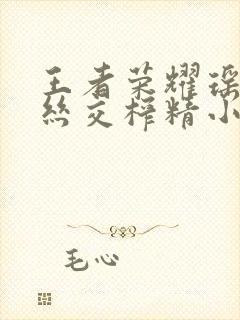 王者荣耀瑶
丝交榨精小
毛心